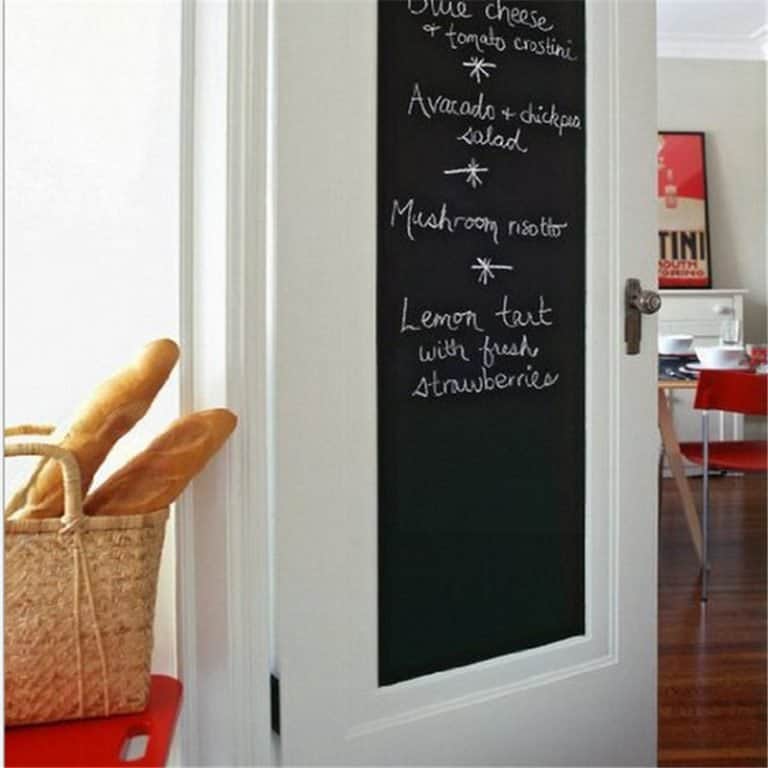 Blue cheese
& tomato crostini
Avacado + chickpea
salad
Mushroom risotto
Lemon tart
with fresh
strawberries
TINI